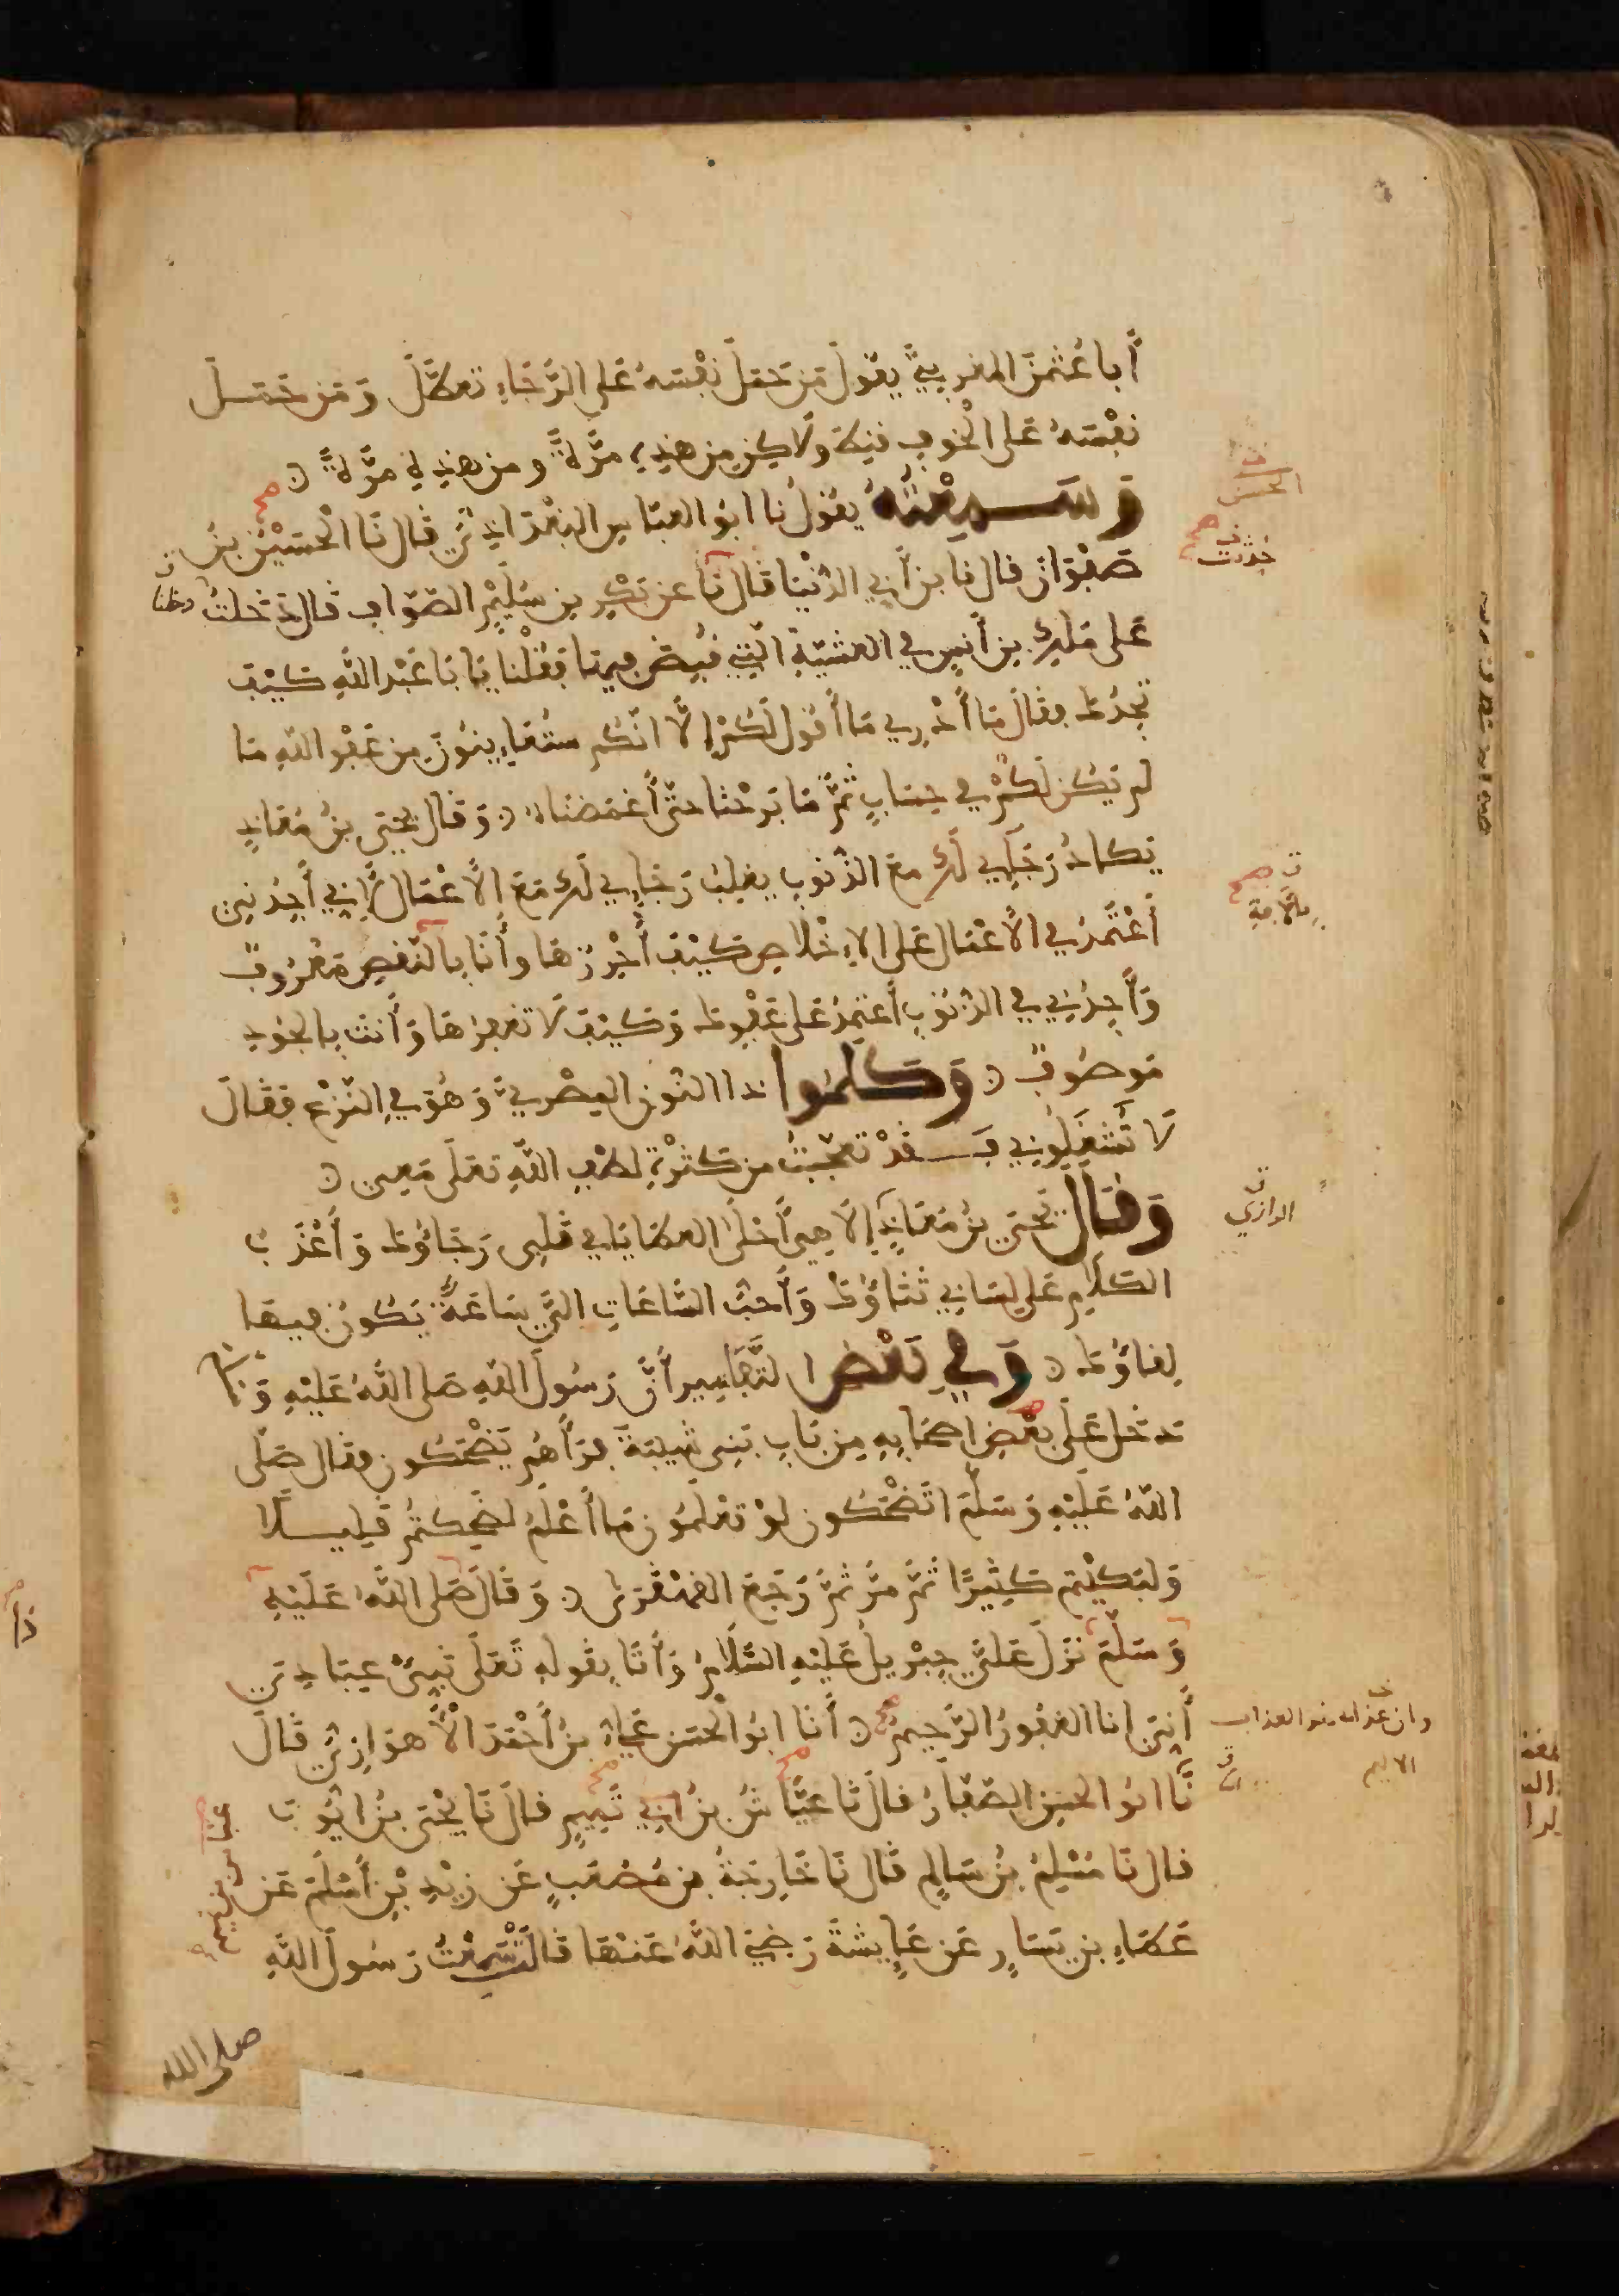 أَبا عُثمنَ المغربيَّ يقول مَن حَمَلَ نفْسَهُ عَلى الرَّجَاءِ تعطَّلَ وَمَن حَمَــل
نفْسَهُ عَلى الخوفِ قنِطَ ولَاكِن مِن هَذِهِ مرَّةً ومن هذِه مرَّةً
وَسَــمِعْتُهُ يقولُ نا ابوُ العبّاسِ البَغْدَاذِيُّ قال نَا الْحُسَيْنُ بنُ
صَفْوَانَ قال نا بن أَبي الدُنْيَا قَال نَا عن بَكْرِ بنِ سُلَيْمٍ الصَوّافِ قال دَخَلتُ
عَلى مَلِكِ بنِ أَنَسٍ في العشيّةِ الّتِي قُبِضَ فيهَا فقُلْنا يَا بَا عَبْدِ اللَّهِ كَيْفَ
تجِدُكَ فقالَ مَا أَدْرِي مَا أَقولُ لَكُمْ إِلَّا أَنّكُم سَتُعَايِنُونَ مِن عَفْوِ اللهِ مَا
لم يَكُن لَكُمْ في حِسَابٍ ثمَّ مَا بَرِحْنا حتَّى أَغمَضْنَاهُ وَقال يحْيَى بنُ مُعَاذٍ
يَكادُ رَجَائِي لَكَ معَ الذُنُوبِ يغلِبُ رَجَائي لَكَ مَعَ الأَعْمَالِ لأَنِّي أَجِدُنِي
أَعْتَمِدُ في الأَعْمَالِ عَلى الإِخْلَاصِ وكَيْفَ أُحْرِزُهَا وأَنَا بالنَّقصِ مَعْرُوفٌ
وَأَجِدُنِي في الذُنُوبِ أَعْتَمِدُ عَلى عَفْوِكَ وَكَيْفَ لَا تغفِرُهَا وَأَنتَ بالجُودِ
مَوصُوفٌ وَكَلَّمُوا ذا النّونِ المِصْريَّ وَهُوَ في النّزْعِ فقَالَ
لَا تَشْغَلُونِي فَــقَدْ تعجّبتُ من كَثْرةِ لطفِ اللهِ تعَلَى مَعِي
وَقَالَ يَحيَى بنُ مُعَاذٍ إِلَاهِي أَحْلَى العَطَايَا في قَلبِي رَجَاؤُكَ وَأَعْذَبُ
الكَلَامِ عَلى لِسَانِي ثَنَاؤُكَ وَأَحَبُّ السَّاعَاتِ إليَّ سَاعَةٌ يَكُونُ فِيهَا
لِقاؤُكَ وَفي بَعْضِ التَّفَاسِيرِ أَنَّ رَسُولَ اللهِ صَلى اللهُ عَلَيْهِ وَسَلَّمَ
دَخَلَ عَلَى بَعْضِ أَصحَابِهِ مِن بَابِ بَنِي شَيبَةَ فرَآهُم يَضْحَكُون فقال صَلَّى
اللهُ عَلَيْهِ وَسَلَّمَ أتَضْحَكُون لوْ تعْلَمُون مَا أَعْلَمُ لضَحِكتُمْ قَلِيــلًا
وَلَبَكَيْتم كَثِيرًا ثُمَّ مَرَّ ثُمَّ رَجَعَ القَهْقَرَى وَقَالَ صَلى اللهُ عَلَيْهِ
وَسَلَّمَ نَزَلَ عَلَيَّ جِبْرِيلُ عَلَيْهِ السَّلَامُ وَأَتَا بِقَولهِ تَعَلَى نَبِّئْ عِبَادِيَ
أَنِّيَ انا الغفُورُ الرَّحِيمُ أَنَا ابُو الْحَسَنِ عَليُّ بنُ أَحْمَدَ الأَهْوَازِيُّ قالَ
نَا ابُو الحَسَنِ الصّفّارُ قالَ نَا عَبَّاسُ بنُ تَمِيمٍ قالَ نَا يَحْيَى بنُ أَيُّوبَ
قال نَا مُسْلِمُ بنُ سَالِمٍ قَال نَا خَارِجَةُ بن مُصْعَبٍ عَن زَيْدِ بْنِ أَسْلَمَ عَن
عَطَاءِ بن يَسَارٍ عَن عَايِشَةَ رَضِيَ اللهُ عَنْهَا قَالَتْ سَمِعْتُ رَسُولَ اللهِ
صلى الله
الحسن
حُدّثت
دخلنا
الرازي
وان عذابي هو العذاب
الاليم